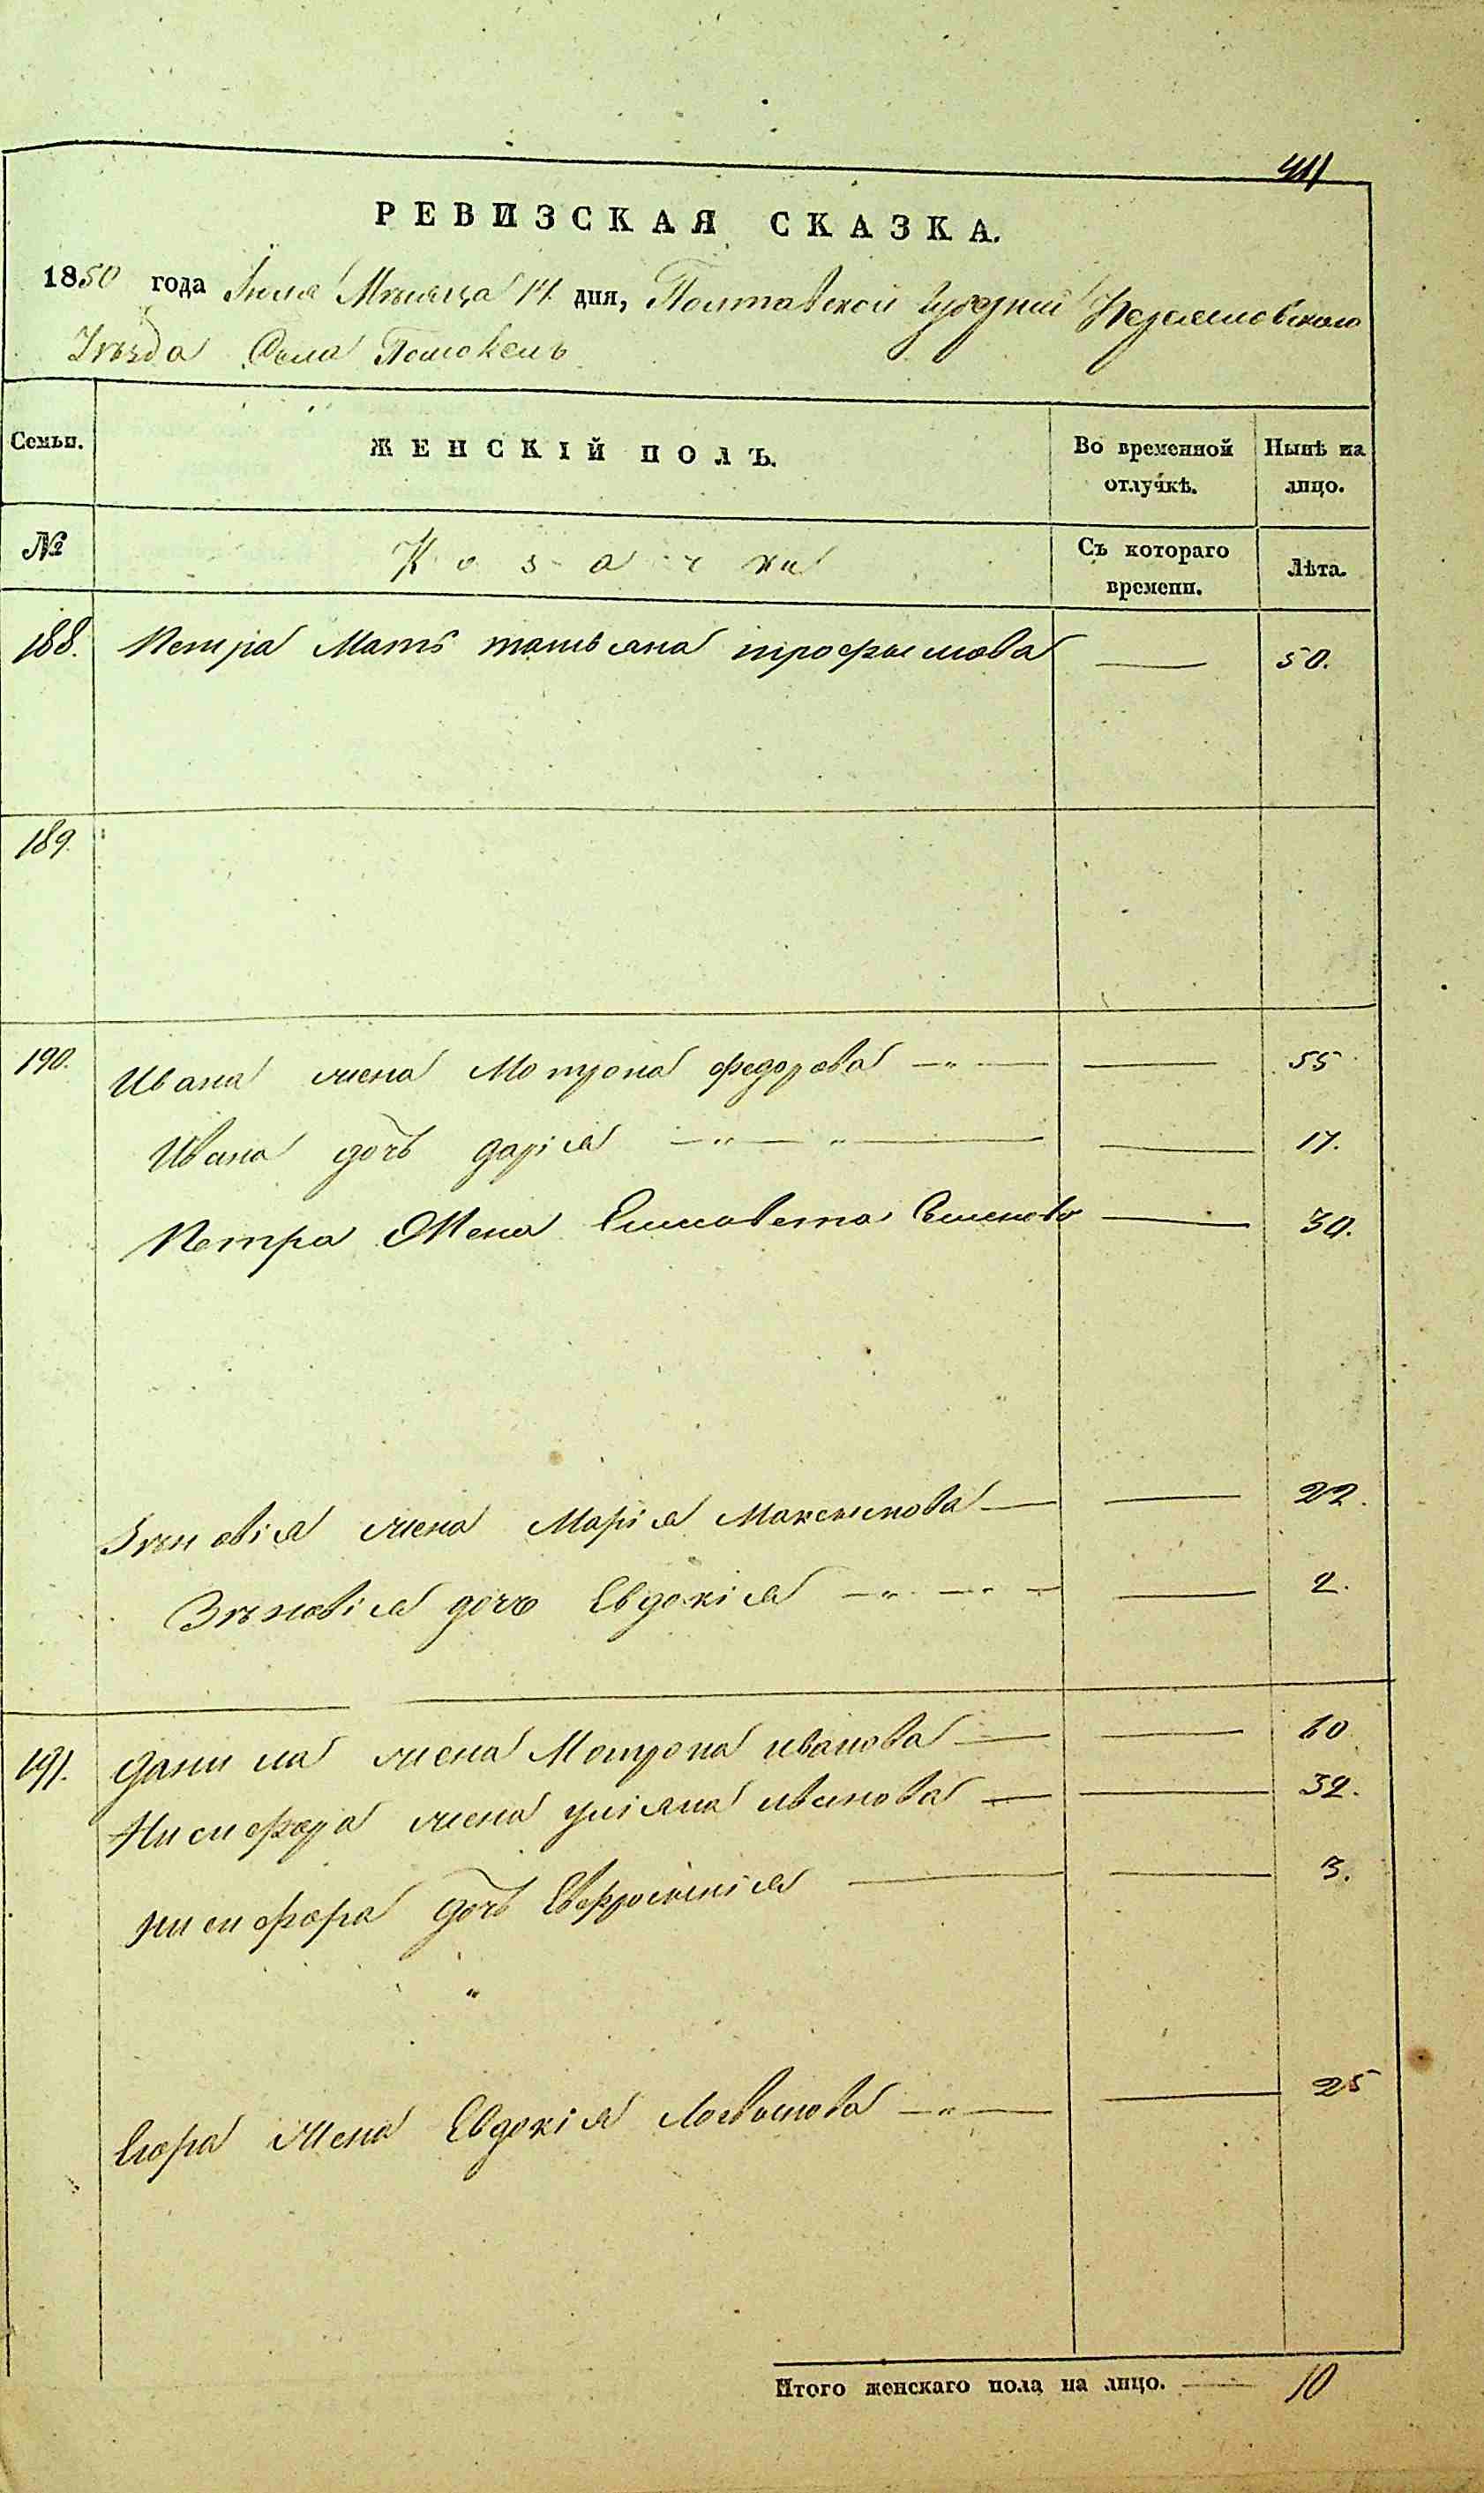 411
РЕВИЗСКАЯ СКАЗКА.
1850 года Іюля Мѣсяца 14 дня, Полтавской губерніи
Уѣзда Села Помокель
Семьи.
ЖЕНСКІЙ ПОЛЪ.
Во временной отлучкѣ.
Нынѣ на лицо.
№
Козачки
Съ котораго времени.
Лѣта.
188. Петра Мать татьяна трофымова — 50.
189.
190. Ивана жена Мотрона федорова — 55
Ивана дочь дарія — 17.
Петра Жена Елисавета Семенова — 30.
Зѣновія жена Марія Максымова — 22.
Зѣновія дочь Евдокія — 2.
191. Данила жена Мотрона иванова — 60
Нисифора жена уліяна иванова — 32.
нисифора дочь Евфросинія — 3.
Егора Жена Евдокія — 25
Итого женскаго пола на лицо. — 10